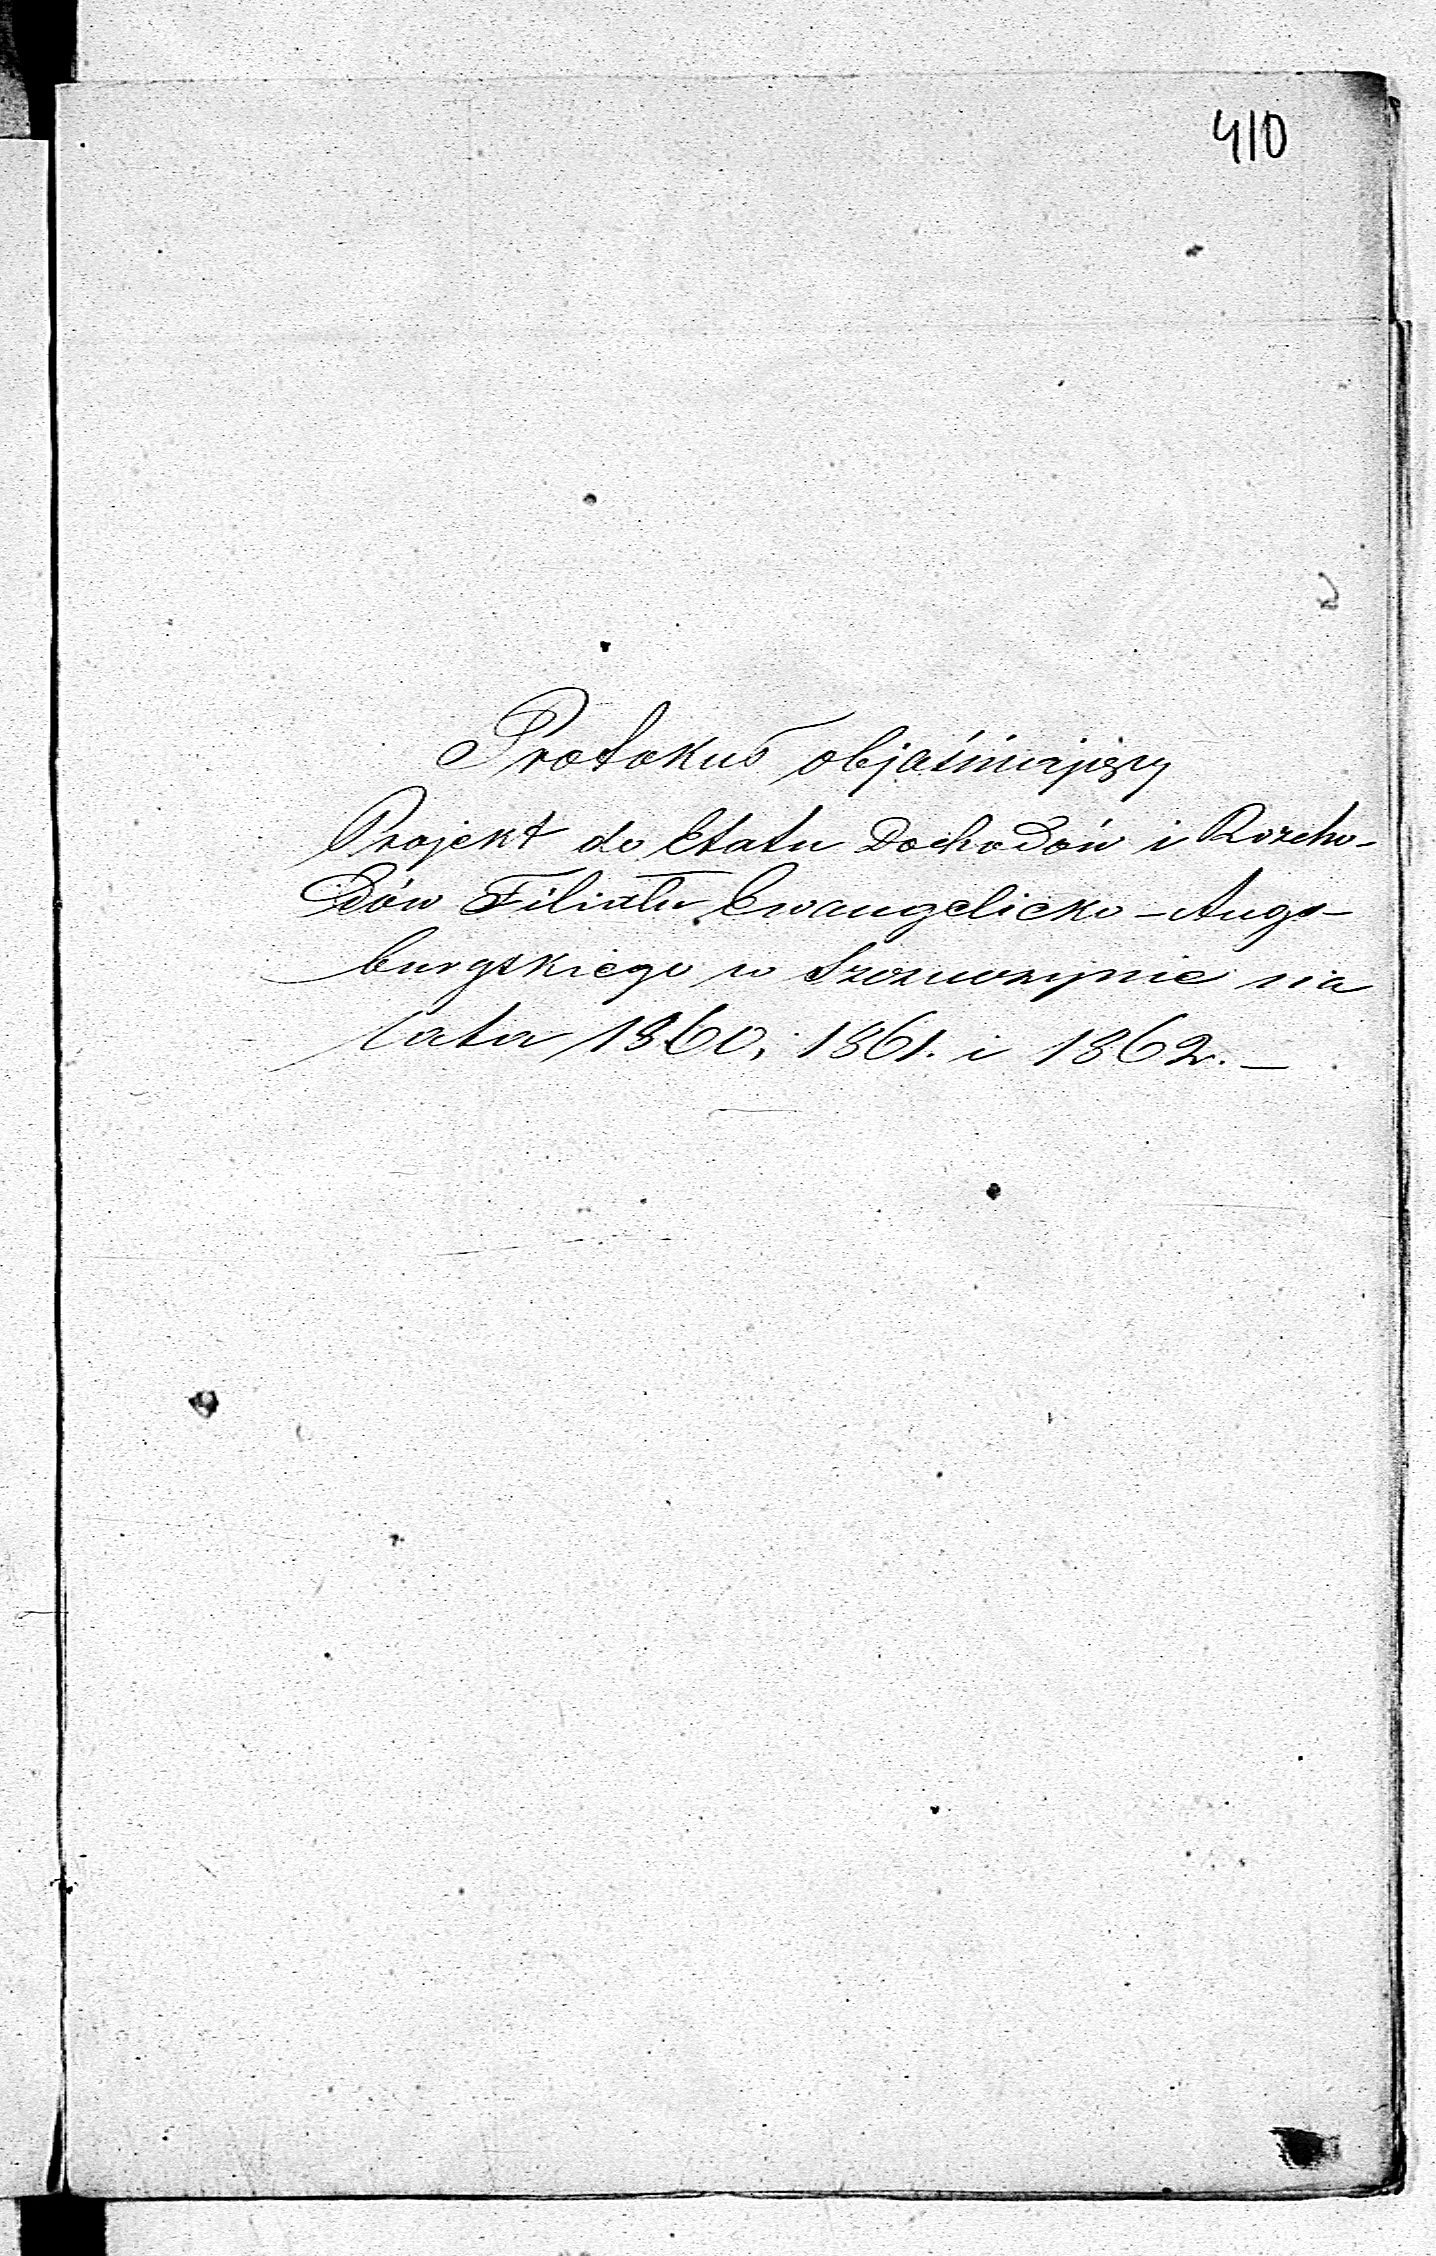 410
Protokuł objaśniający
Projekt do Etatu Dochodów i Rozcho-
dów Filiału Ewangelicko-Augs-
burgskiego w Szczuczynie na
lata 1860, 1861. i 1862.—